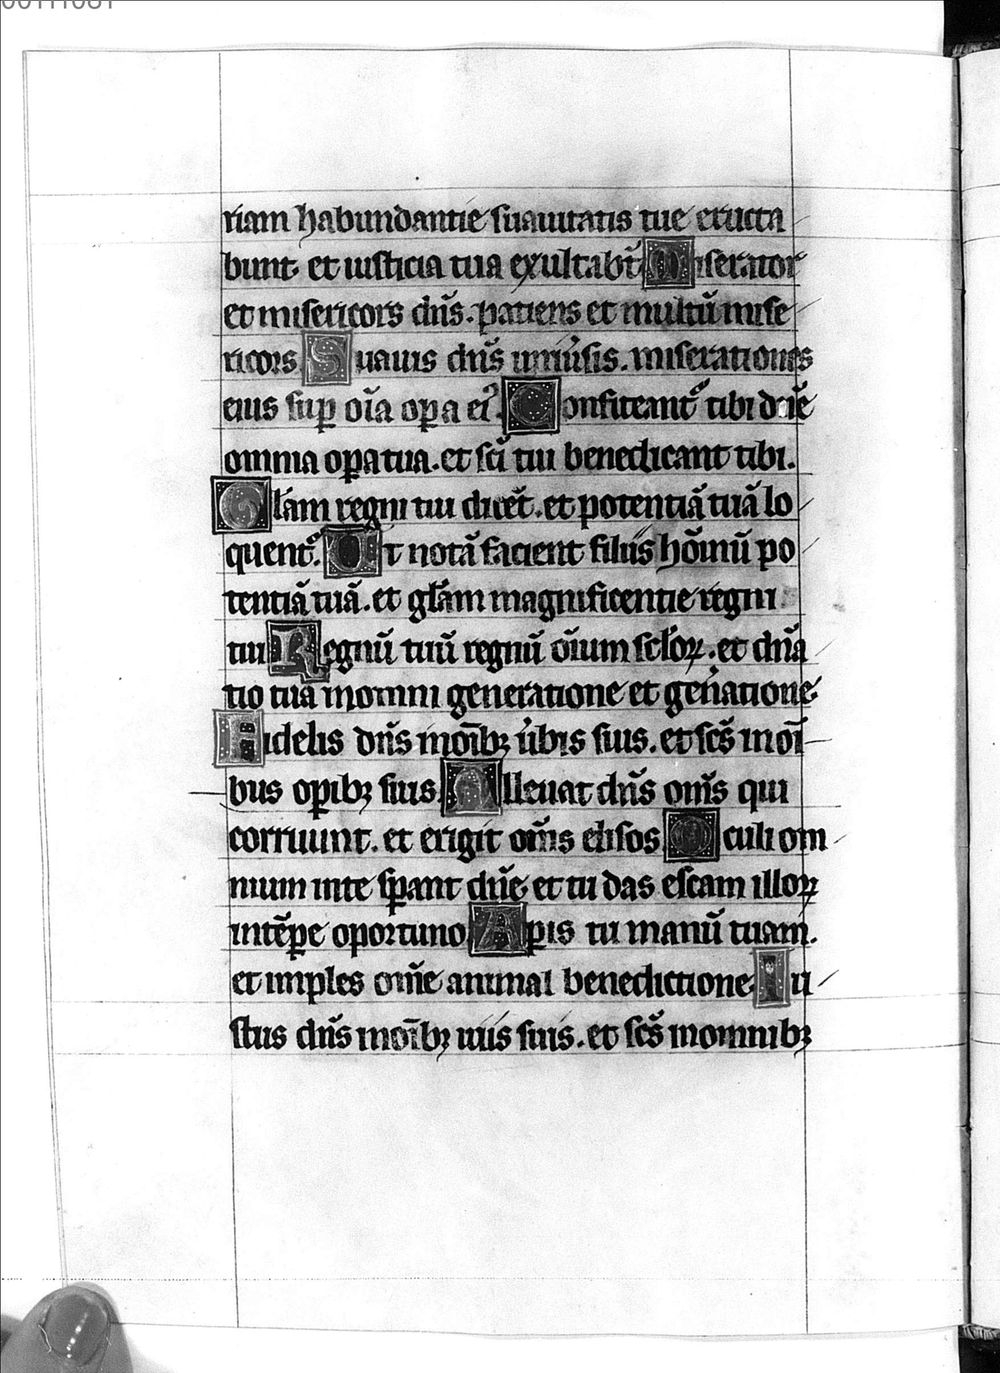 riam habundantie suauitatis tue eructa
bunt et iusticia tua exultabt̄ Miserator
et misericors dn̄s. patiens et multū mise
ricors Suauis dn̄s uniu̇sis. miserationes
eius sup oīa opa ei⁹. Confiteant᷑ tibi dn̄e
omnia opa tua. et sc̄i tui benedicant tibi.
Gl̄am regni tui dicēt. et potentiā tuā lo
quent᷑. Ut notā faciant filiis hōinū po
tentiā tuā. et gl̄am magnificentie regni
tui Regnū tuū regnū oīum sc̄loꝝ. et dn̄a
tio tua in omni generatione et gen̄atione
Fidelis dn̄s in oīb; u̇bis suis. et sc̄s in oī
bus opib; suis Alleuat dn̄s om̄s qui
corruunt. et erigit om̄s elisos Oculi om
nium in te spant dn̄e et tu das escam illoꝝ
in tēpe oportuno Apis tu manū tuam.
et imples om̄e animal benedictione Iu
stus dn̄s in oīb; uiis suis. et sc̄s in omnib;